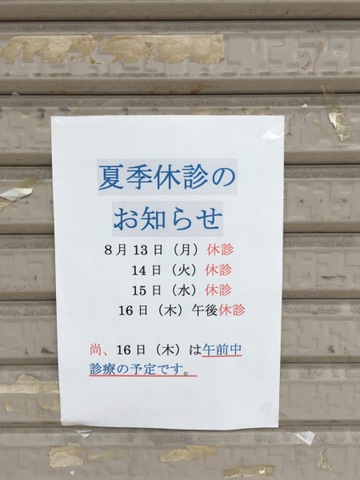 夏季休診の
お知らせ
8月13日（月）休診
14日（火）休診
15日（水）休診
16日（木）午後休診
尚、16日（木）は午前中
診療の予定です。